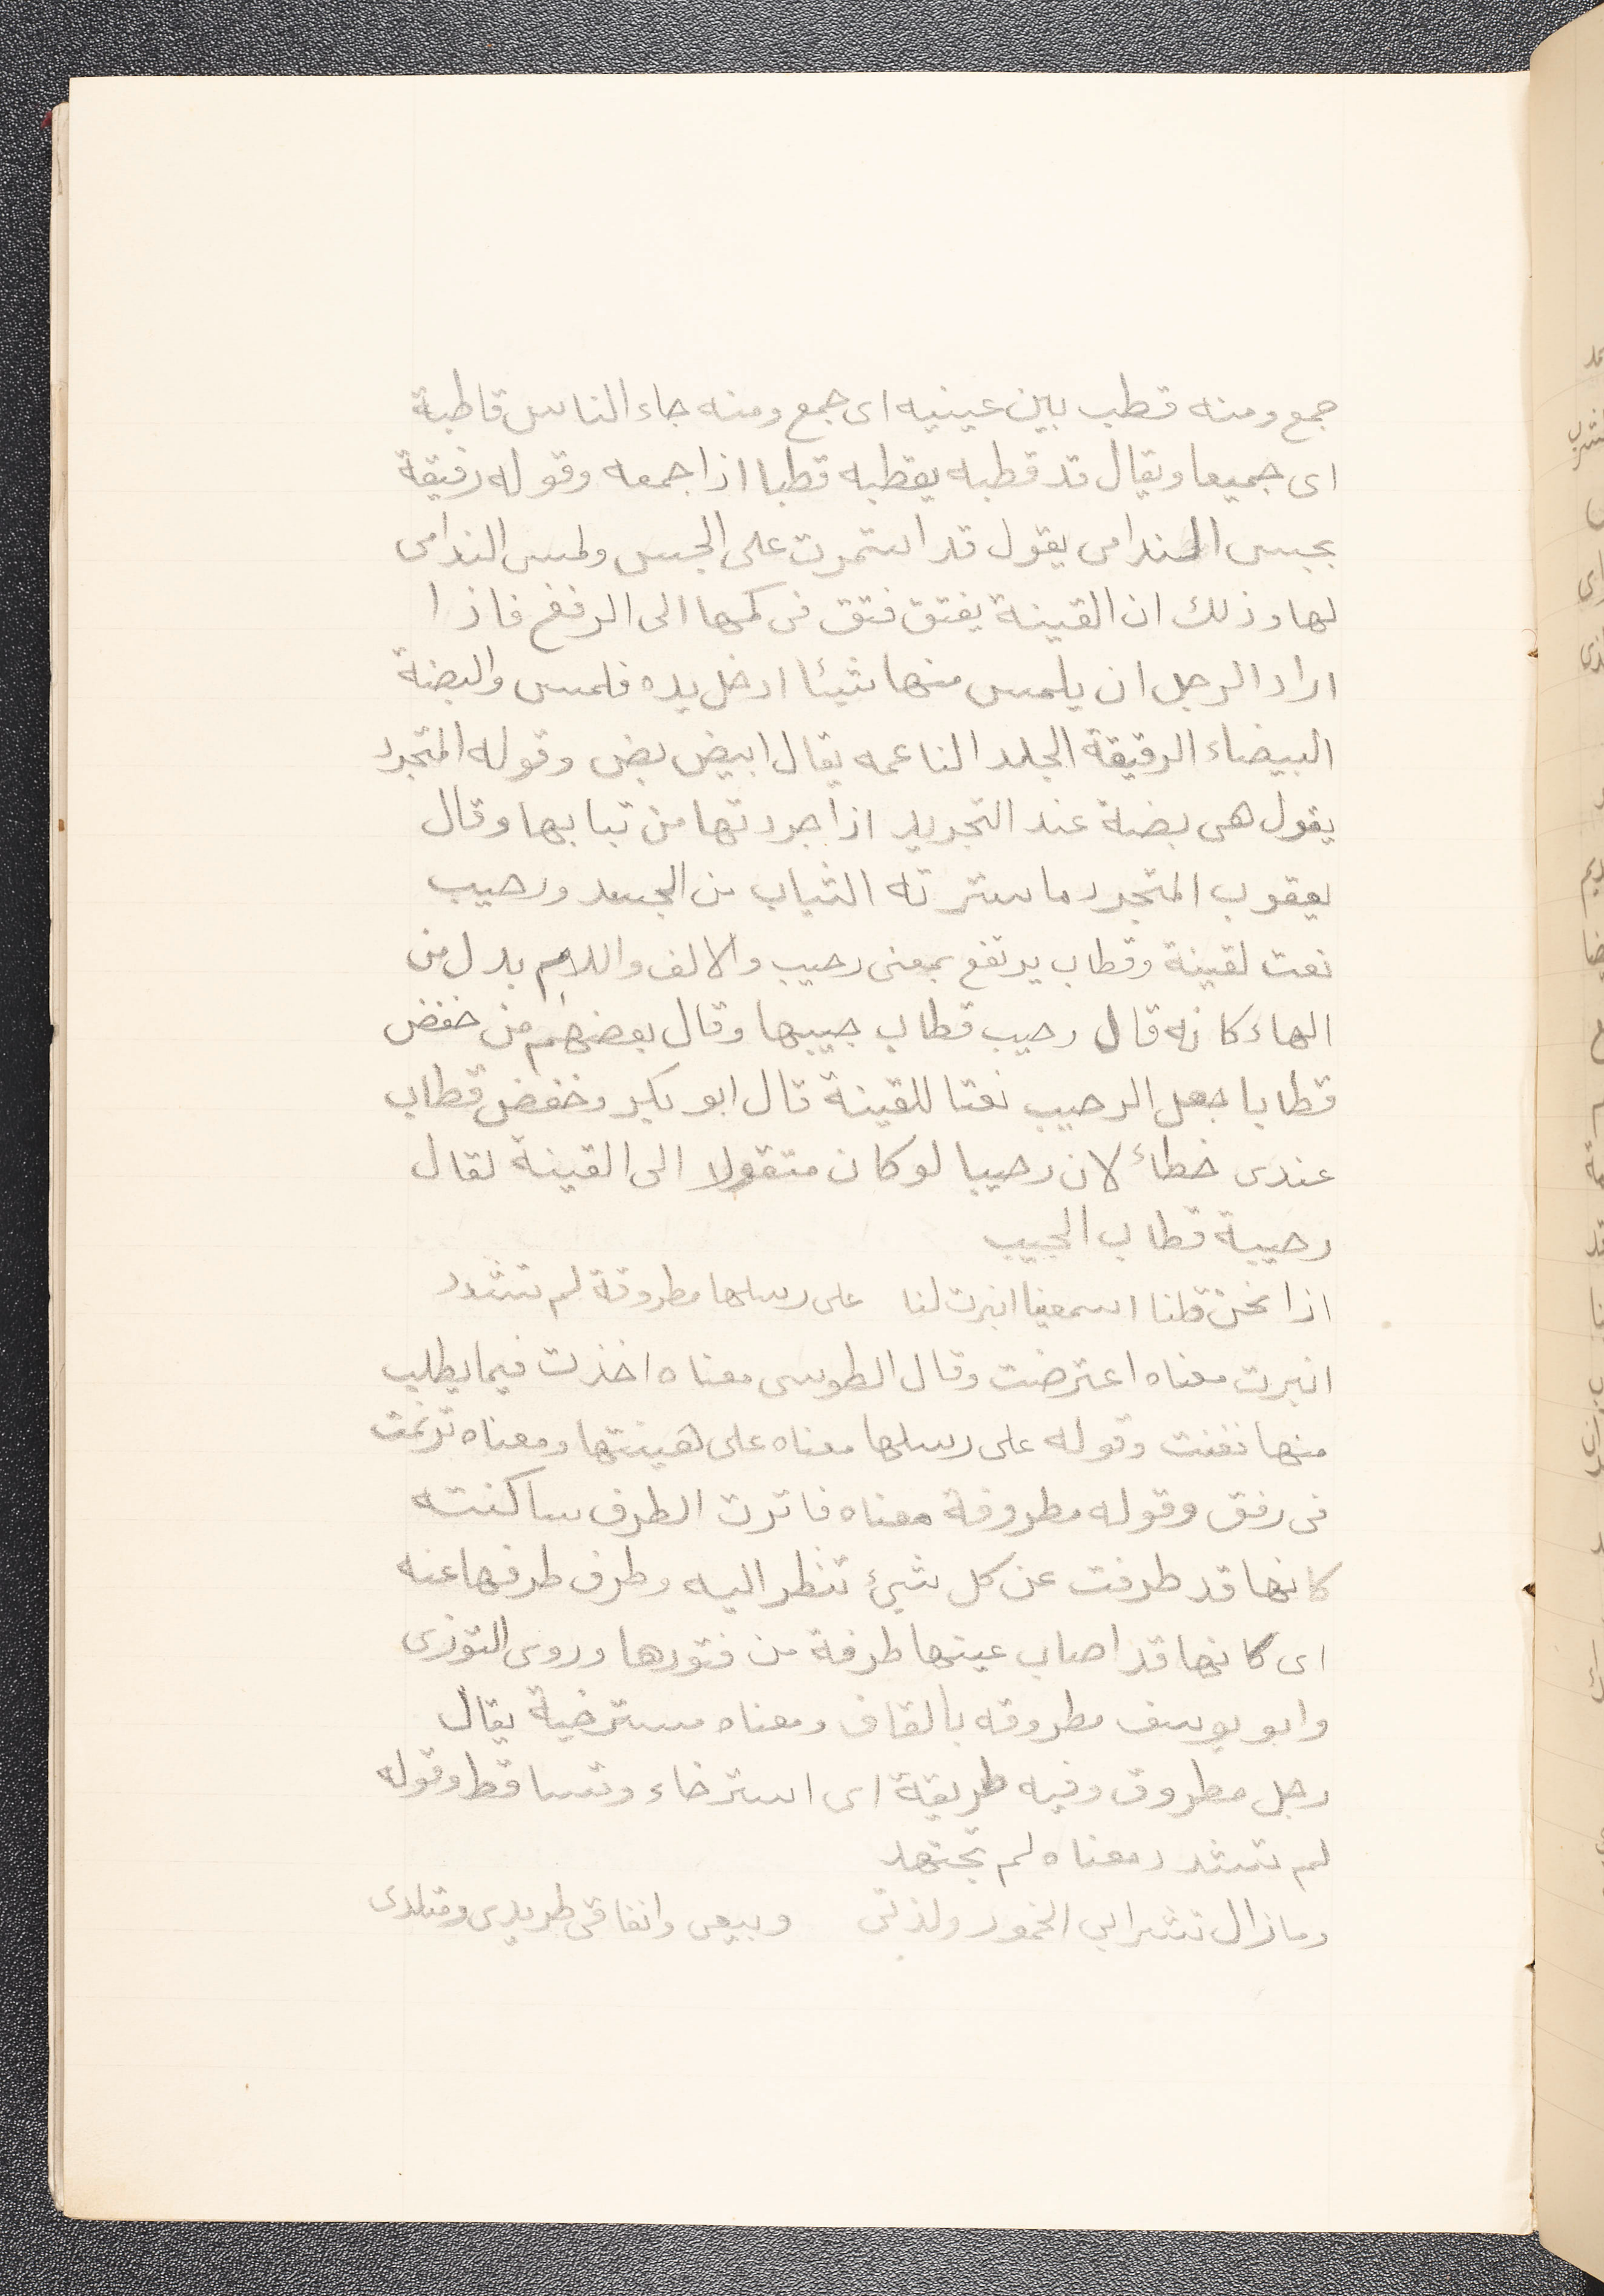 جمع ومنه قطب بين عينيه اى جمع ومنه جاء الناس قاطبة
اى جميعا ويقال قد قطبه يقطبه قطبا اذا جمعه وقوله رفيقة
بجس الندامى يقول قد استمرت على الجس ولمس الندامى
لها وذلك ان القينة يفتق فتق فى كمها الى الرفغ فاذا
اراد الرجل ان يلمس منها شيئا ادخل يده فلمس والبضة
البيضاء الرقيقة الجلد الناعمه يقال ابيض بض وقوله المتجرد
يقول هى بضة عند التجريد اذا جردتها من تيابها وقال
يعقوب المتجرد ما سترته الثياب من الجسد ورحيب
نعت لقينة وقطاب يرتفع بمعنى رحيب والالف واللام بدل من
الهاء كانه قال رحيب قطاب جيبها وقال بعضهم من خفض
قطابا جعل الرحيب نعتا للقينة قال ابو بكر وخفض قطاب
عندى خطأ لان رحيبا لو كان منقولا الى القينة لقال
رحيبة قطاب الجيب
اذا نحن قلنا اسمعينا انبرت لنا على رسلها مطروقة لم تشدد
انبرت معناه اعترضت وقال الطوسى معناه اخذت فيما يطلب
منها فغنت وقوله على رسلها معناه على هينتها ومعناه ترنمت
فى رفق وقوله مطروفة معناه فاترت الطرف ساكنته
كانها قد طرفت عن كل شىء تنظر اليه وطرف طرفها عنه
اى كانها قد اصاب عينها طرفة من فتورها وروى التوزى
وابو يوسف مطروقه بالقاف ومعناه مسترخية يقال
رجل مطروق وفيه طريقة اى استرخاء وتساقط وقوله
لم تشدد معناه لم تجتهد
وما زال تشرابي الخمور ولذتى وبيعى وانفاقى طريدى ومتلدى